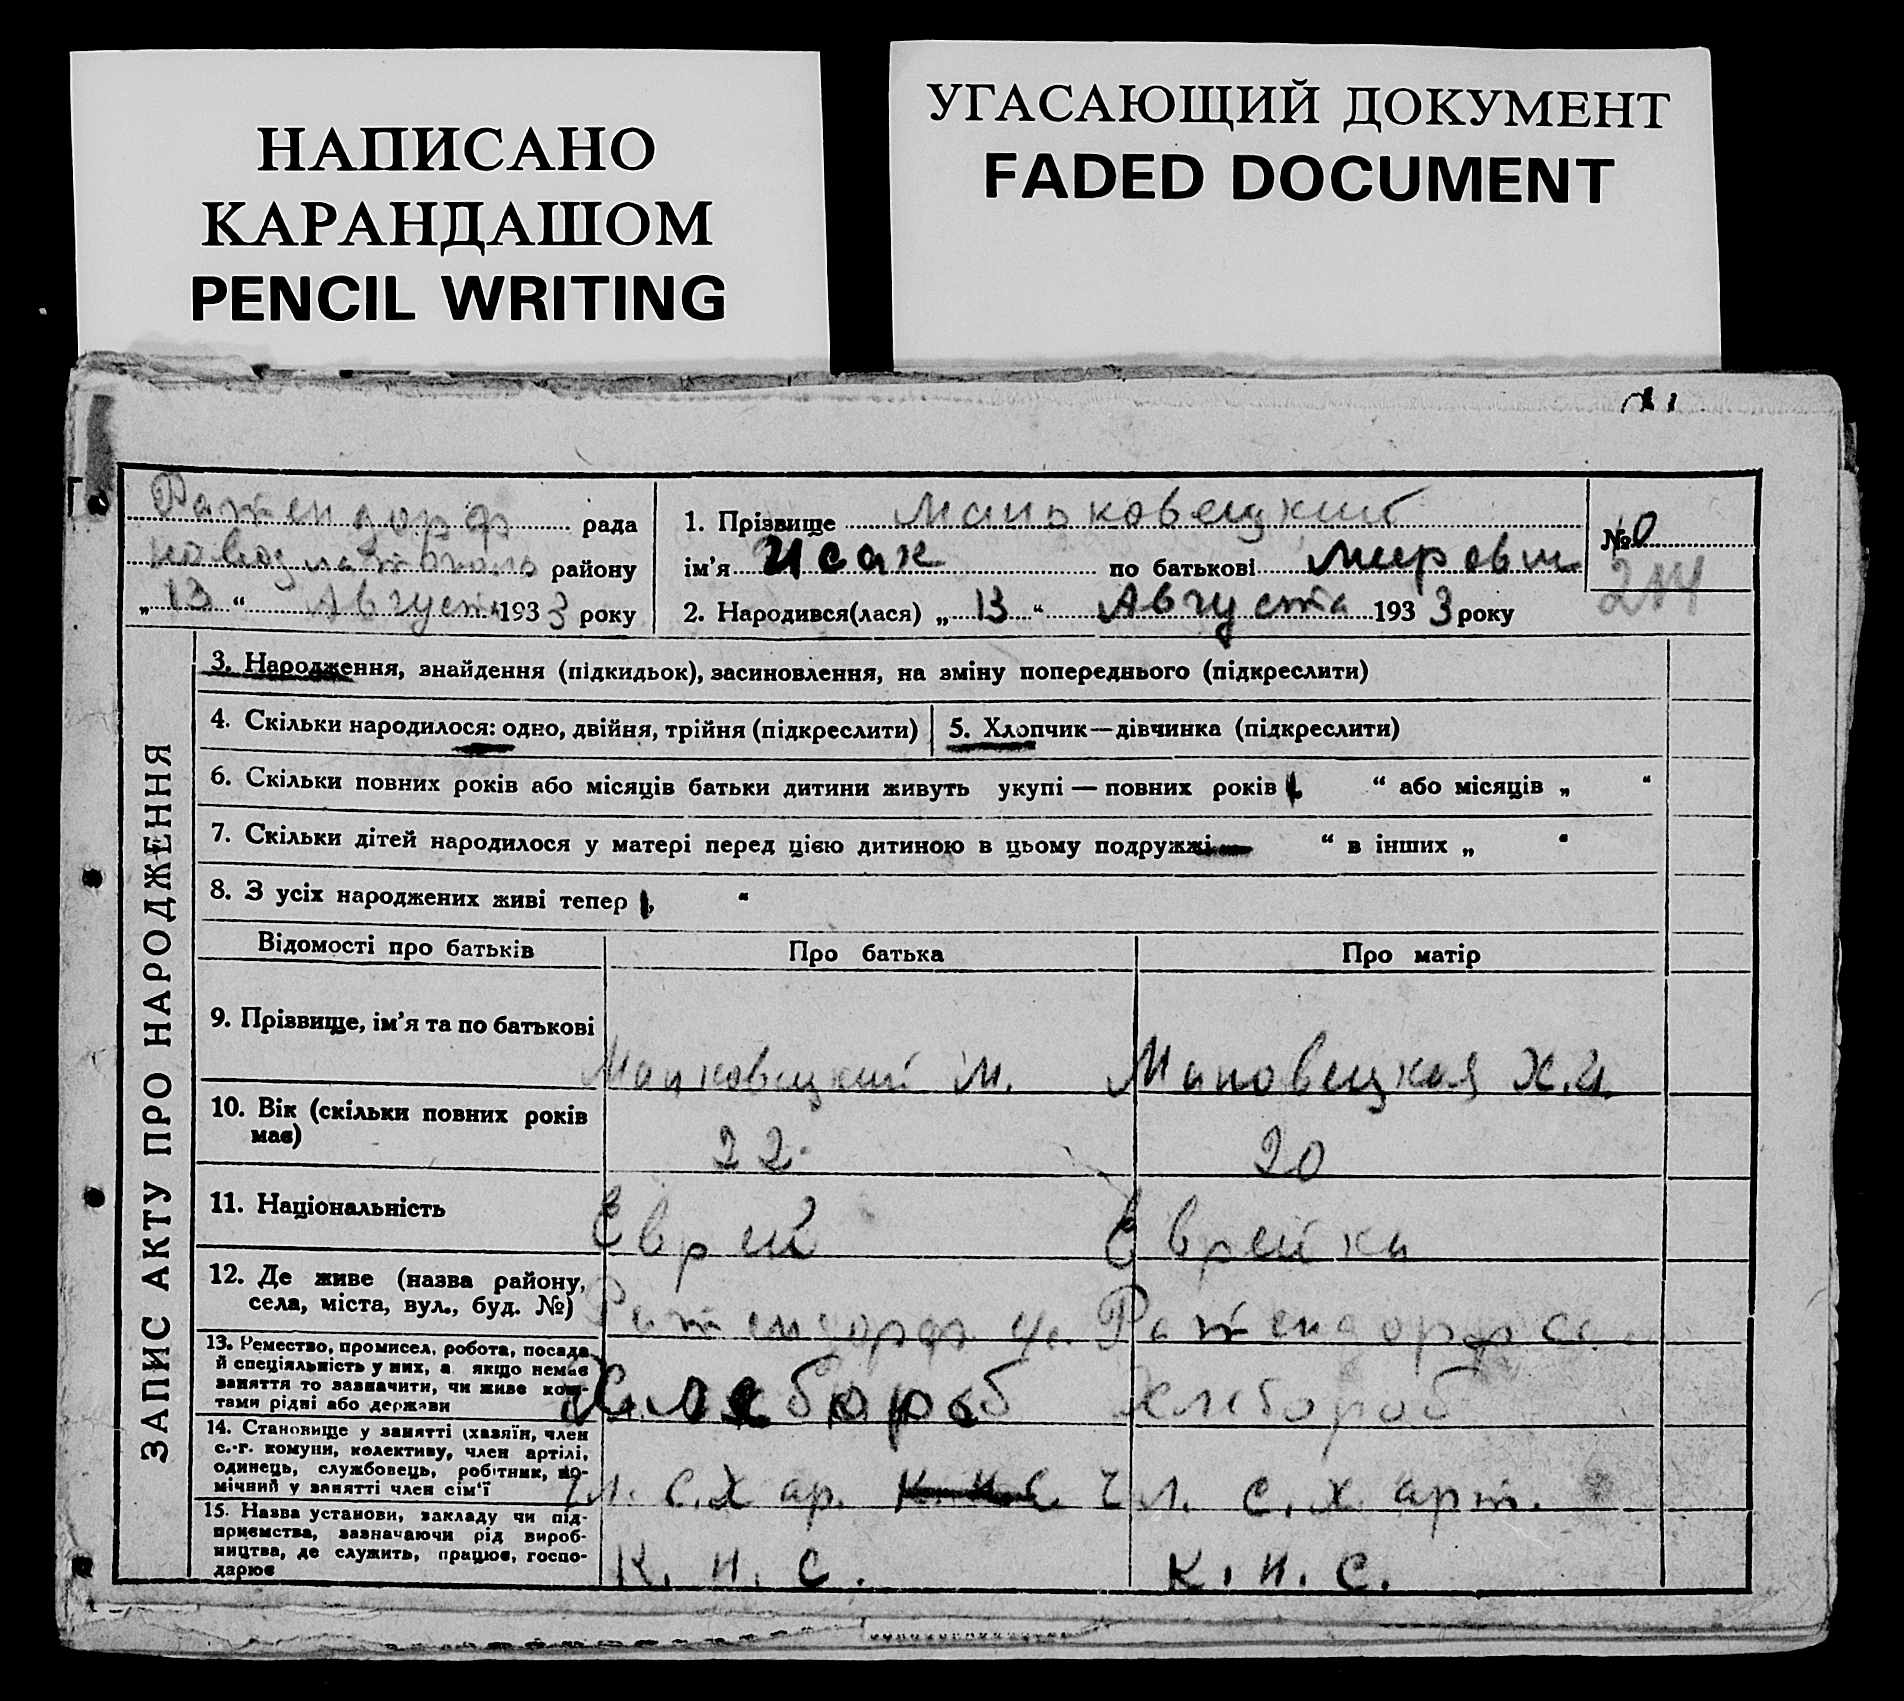 НАПИСАНО
КАРАНДАШОМ
PENCIL WRITING
УГАСАЮЩИЙ ДОКУМЕНТ
FADED DOCUMENT
Ратендорф рада
району
„ 13 “ Августа 1933 року
1. Прізвище
ім’я Исак по батькові
2. Народився(лася) „ 13 “ Августа 1933 року
№ 0
214
ЗАПИС АКТУ ПРО НАРОДЖЕННЯ
3. Народження, знайдення (підкидьок), засиновлення, на зміну попереднього (підкреслити)
4. Скільки народилося: одно, двійня, трійня (підкреслити)
5. Хлопчик—дівчинка (підкреслити)
6. Скільки повних років або місяців батьки дитини живуть укупі — повних років „ “ або місяців „ “
7. Скільки дітей народилося у матері перед цією дитиною в цьому подружжі — “ в інших „ “
8. З усіх народжених живі тепер „ “
Відомості про батьків Про батька Про матір
9. Прізвище, ім’я та по батькові
Манковецкий М. Маповецкая Х.И.
10. Вік (скільки повних років
має)
22 20
11. Національність
Еврей Еврейка
12. Де живе (назва району,
села, міста, вул., буд. №)
Ратендорф Ратендорф
13. Ремество, промисел, робота, посада
й спеціяльність у них, а якщо немає
заняття то зазначити, чи живе кош-
тами рідні або держави
Хлебороб Хлебороб
14. Становище у занятті (хазяїн, член
с.-г. комуни, колективу, член артілі,
одинець, службовець, робітник, по-
мічний у занятті член сім’ї
Чл. с.х ар. Чл. с.х. арт.
15. Назва установи, закладу чи під-
приємства, зазначаючи рід вироб-
ництва, де служить, працює, госпо-
дарює
К. И. С. К. И. С.